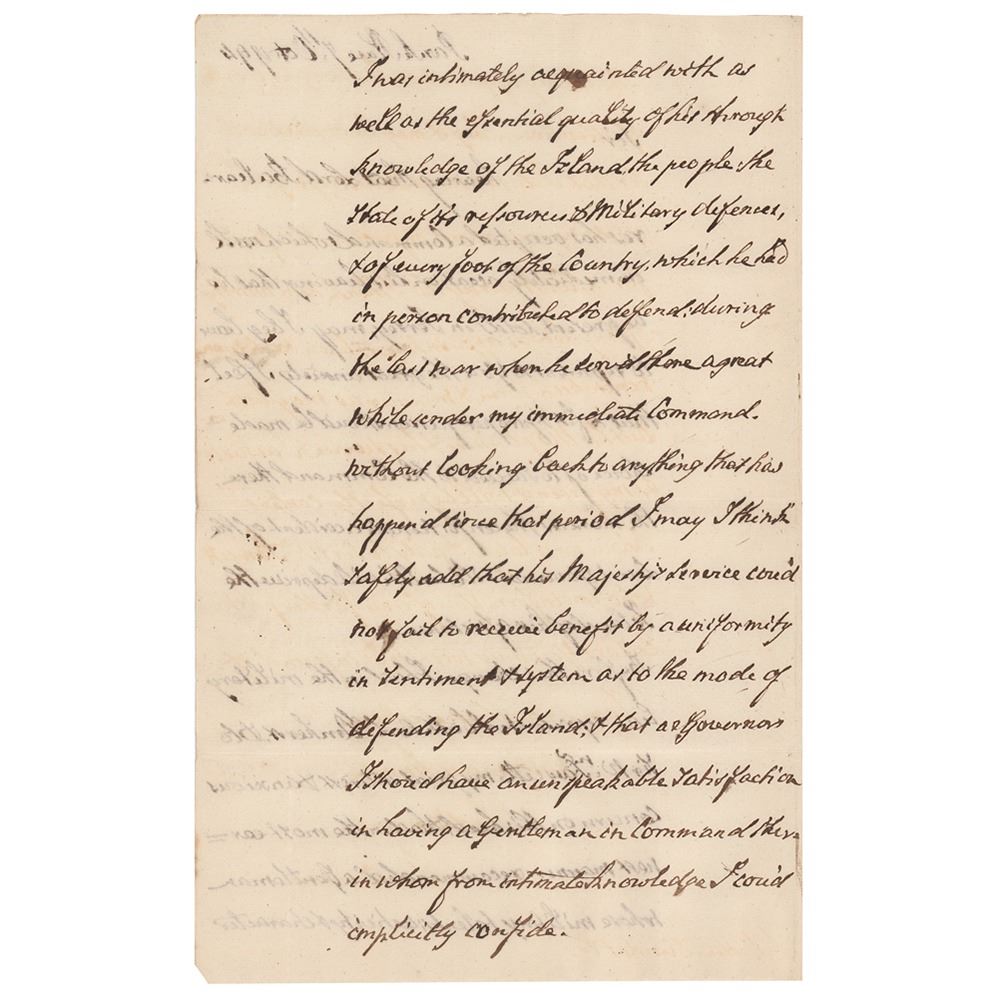 I was intimately acquainted with as
well as the essential quality of his through
knowledge of the Island, the people the
State of its ressources & Military defences,
& of every foot of the Country, which he had
in person contributed to defend: during
the last war when he serv'd there a great
while under my immediate Command.
without looking back to any thing that has
happen'd since that period I may I think
safely add that his Majesty's service cou'd
not fail to receive benefit by a uniformity
in Sentiment & System as to the mode of
defending the Island; & that as Governor
I shou'd have an unspeakable satisfaction
in having a Gentleman in Command there
in whom from intimate knowledge I cou'd
implicitly confide.